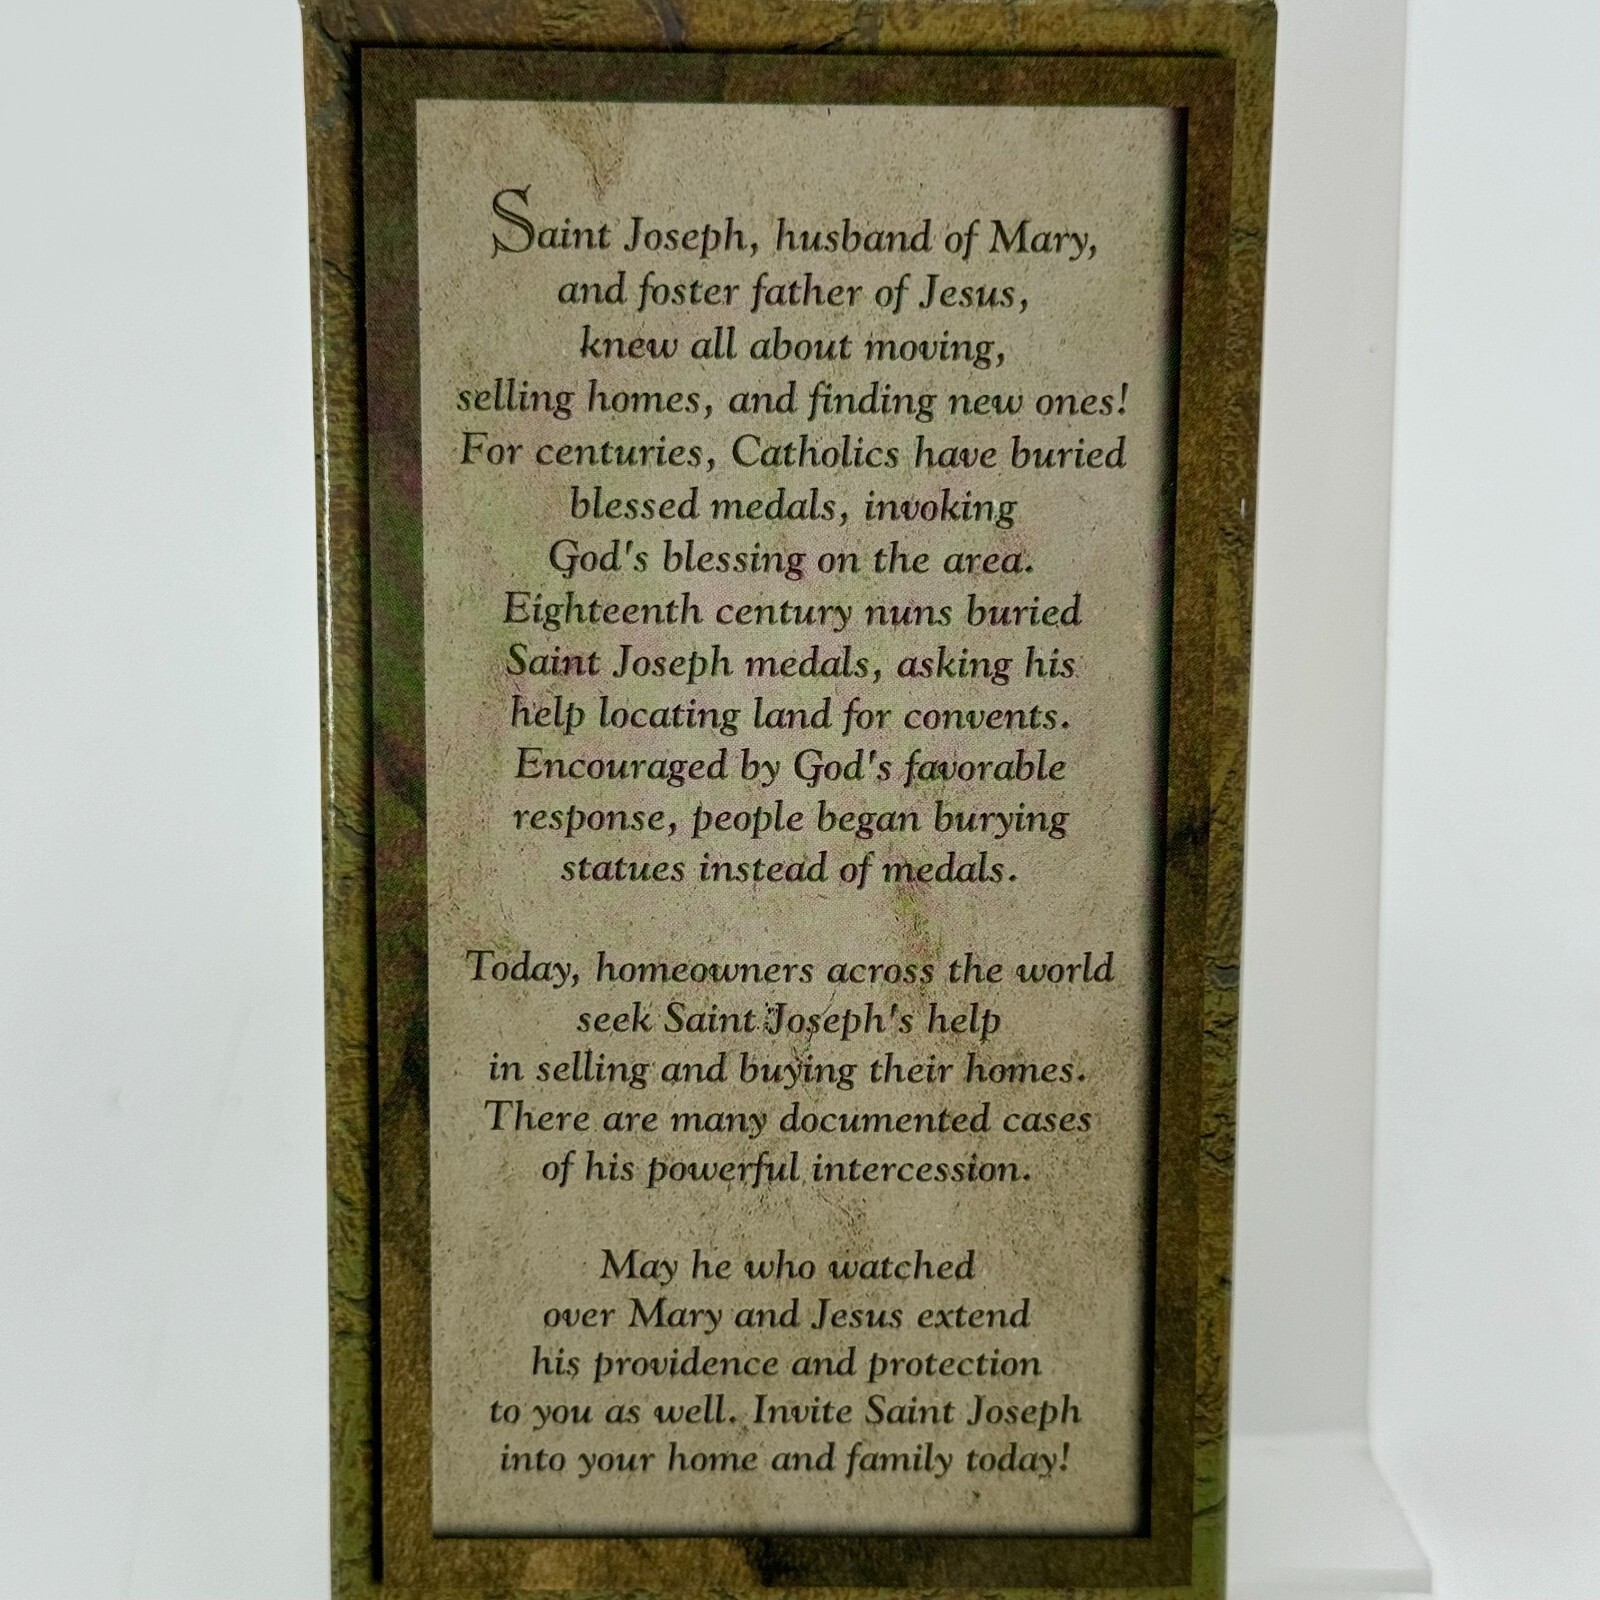 Saint Joseph, husband of Mary,
and foster father of Jesus,
knew all about moving,
selling homes, and finding new ones!
For centuries, Catholics have buried
blessed medals, invoking
God's blessing on the area.
Eighteenth century nuns buried
Saint Joseph medals, asking his
help locating land for convents.
Encouraged by God's favorable
response, people began burying
statues instead of medals.
Today, homeowners across the world
seek Saint Joseph's help
in selling and buying their homes.
There are many documented cases
of his powerful intercession.
May he who watched
over Mary and Jesus extend
his providence and protection
to you as well. Invite Saint Joseph
into your home and family today!